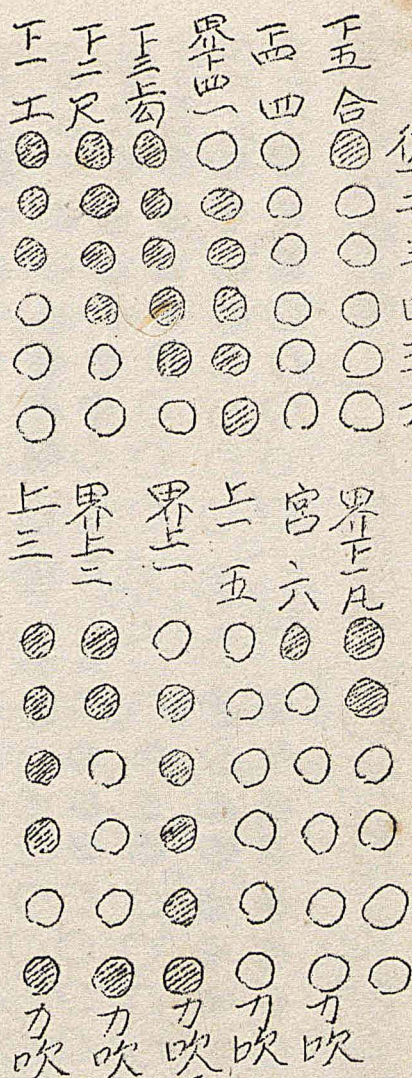 下五 合
下四 四
界下四一
下三 勾
下二 尺
下一 工
界下一凡
宮 六
上一 五
界上一
界上二
上三
力吹
力吹
力吹
力吹
力吹